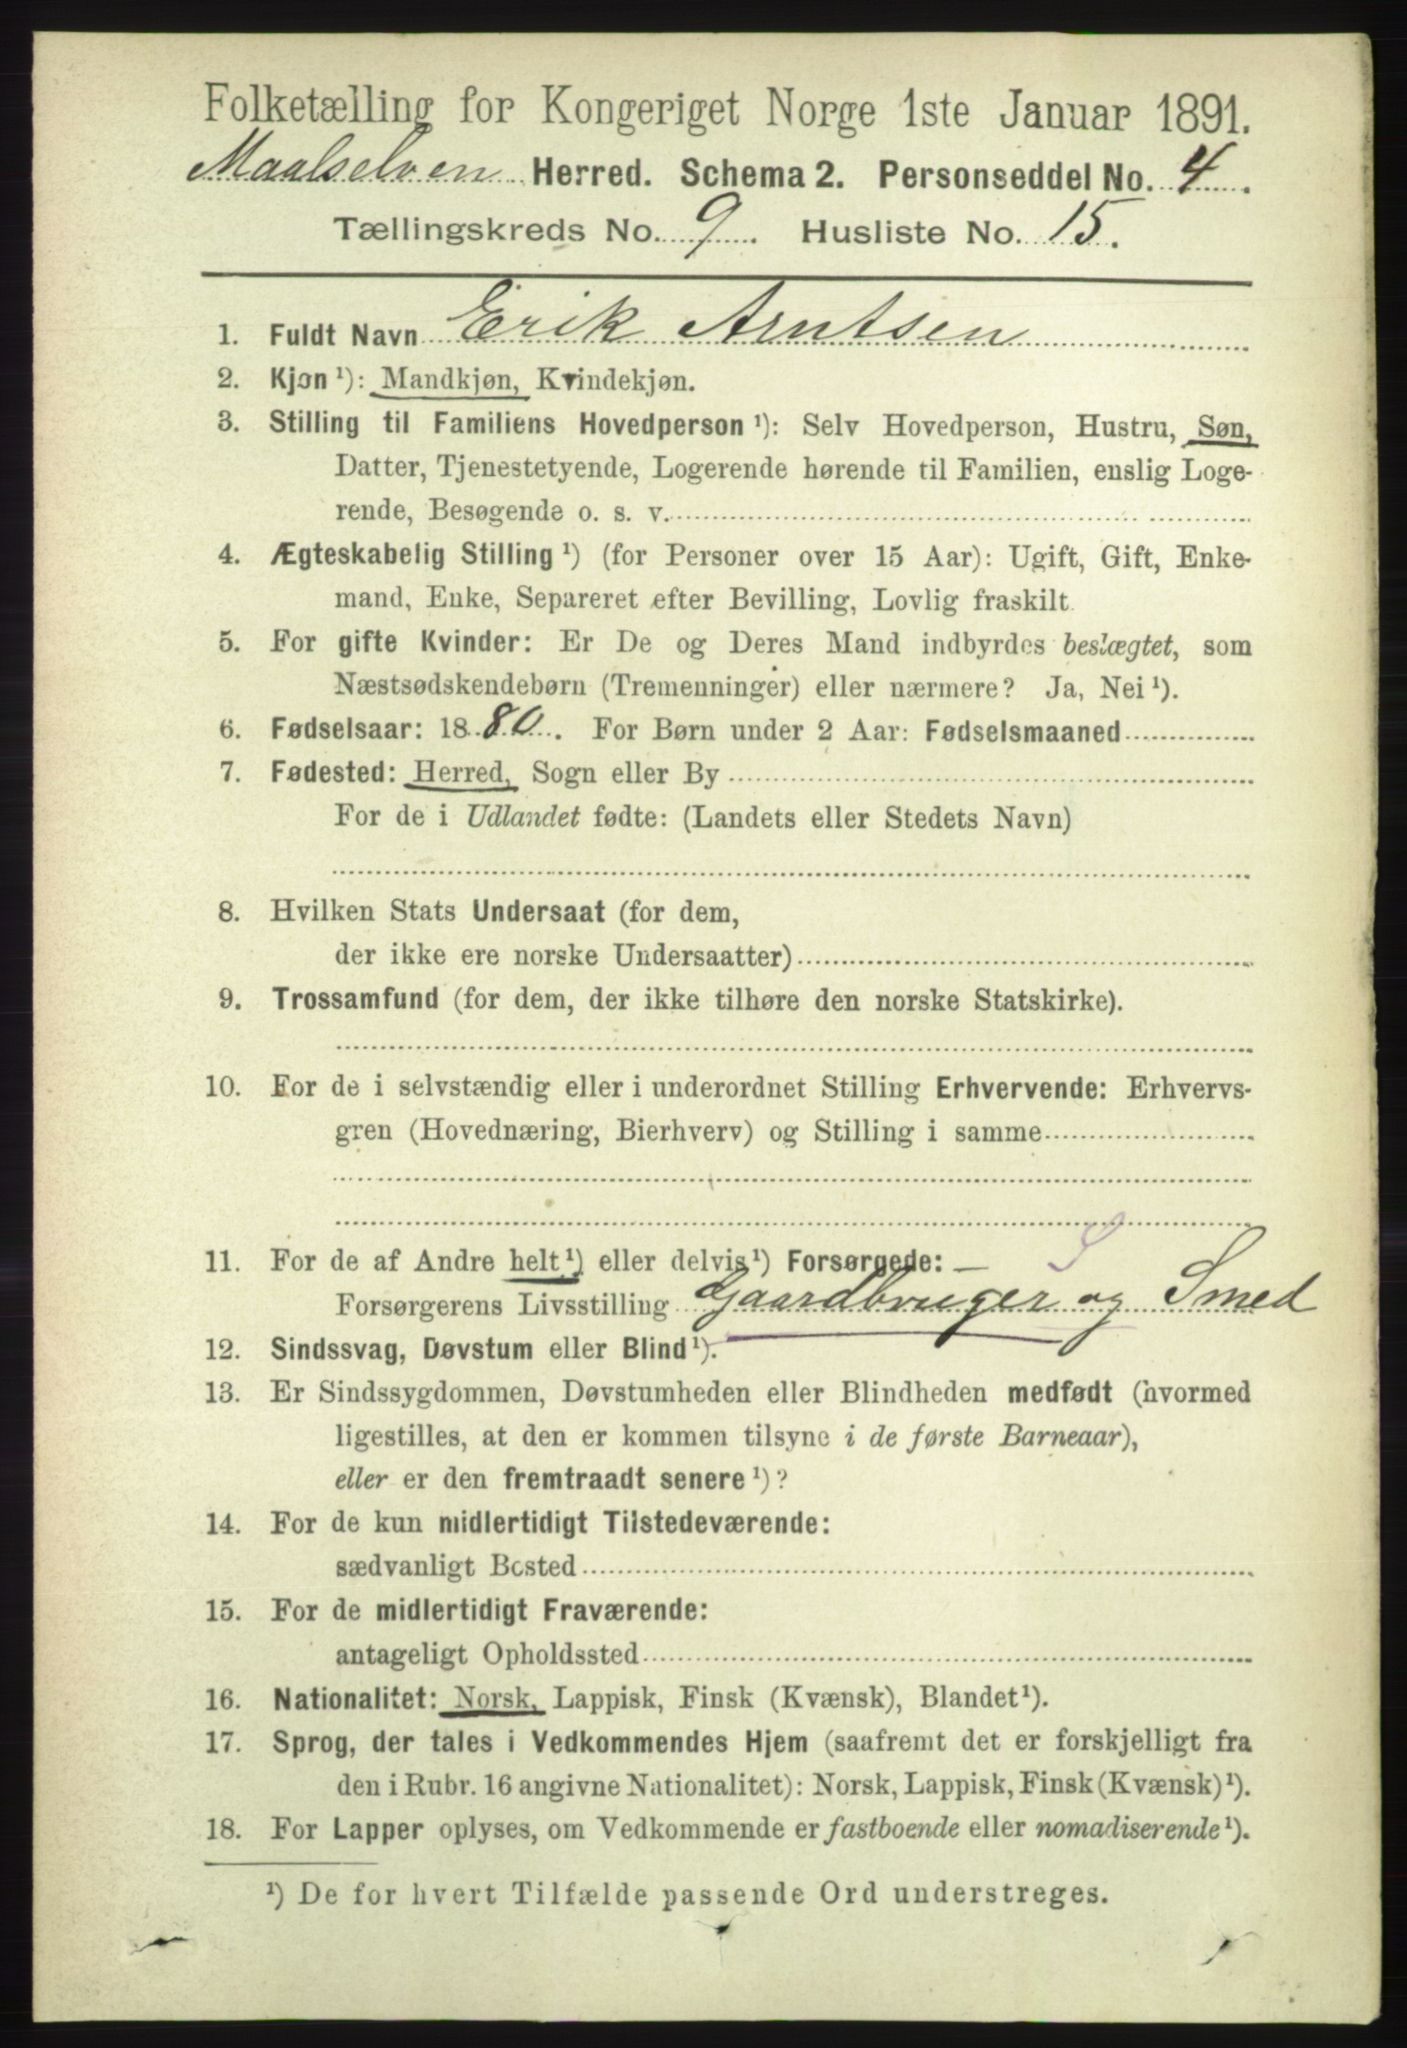 Folketælling for Kongeriget Norge 1ste Januar 1891.
Maalselven Herred. Schema 2. Personseddel No. 4.
Tællingskreds No. 9. Husliste No. 15.
1. Fuldt Navn Erik Arntsen
2. Kjøn ¹): Mandkjøn, Kvindekjøn.
3. Stilling til Familiens Hovedperson ¹): Selv Hovedperson, Hustru, Søn,
Datter, Tjenestetyende, Logerende hørende til Familien, enslig Loge-
rende, Besøgende o. s. v.
4. Ægteskabelig Stilling ¹) (for Personer over 15 Aar): Ugift, Gift, Enke-
mand, Enke, Separeret efter Bevilling, Lovlig fraskilt.
5. For gifte Kvinder: Er De og Deres Mand indbyrdes beslægtet, som
Næstsødskendebørn (Tremenninger) eller nærmere? Ja, Nei ¹).
6. Fødselsaar: 1880. For Børn under 2 Aar: Fødselsmaaned
7. Fødested: Herred, Sogn eller By
For de i Udlandet fødte: (Landets eller Stedets Navn)
8. Hvilken Stats Undersaat (for dem,
der ikke ere norske Undersaatter)
9. Trossamfund (for dem, der ikke tilhøre den norske Statskirke).
10. For de i selvstændig eller i underordnet Stilling Erhvervende: Erhvervs-
gren (Hovednæring, Bierhverv) og Stilling i samme
11. For de af Andre helt ¹) eller delvis ¹) Forsørgede: — S
Forsørgerens Livsstilling Gaardbruger og Smed
12. Sindssvag, Døvstum eller Blind ¹).
13. Er Sindssygdommen, Døvstumheden eller Blindheden medfødt (hvormed
ligestilles, at den er kommen tilsyne i de første Barneaar),
eller er den fremtraadt senere ¹)?
14. For de kun midlertidigt Tilstedeværende:
sædvanligt Bosted
15. For de midlertidigt Fraværende:
antageligt Opholdssted
16. Nationalitet: Norsk, Lappisk, Finsk (Kvænsk), Blandet ¹).
17. Sprog, der tales i Vedkommendes Hjem (saafremt det er forskjelligt fra
den i Rubr. 16 angivne Nationalitet): Norsk, Lappisk, Finsk (Kvænsk) ¹).
18. For Lapper oplyses, om Vedkommende er fastboende eller nomadiserende ¹).
¹) De for hvert Tilfælde passende Ord understreges.